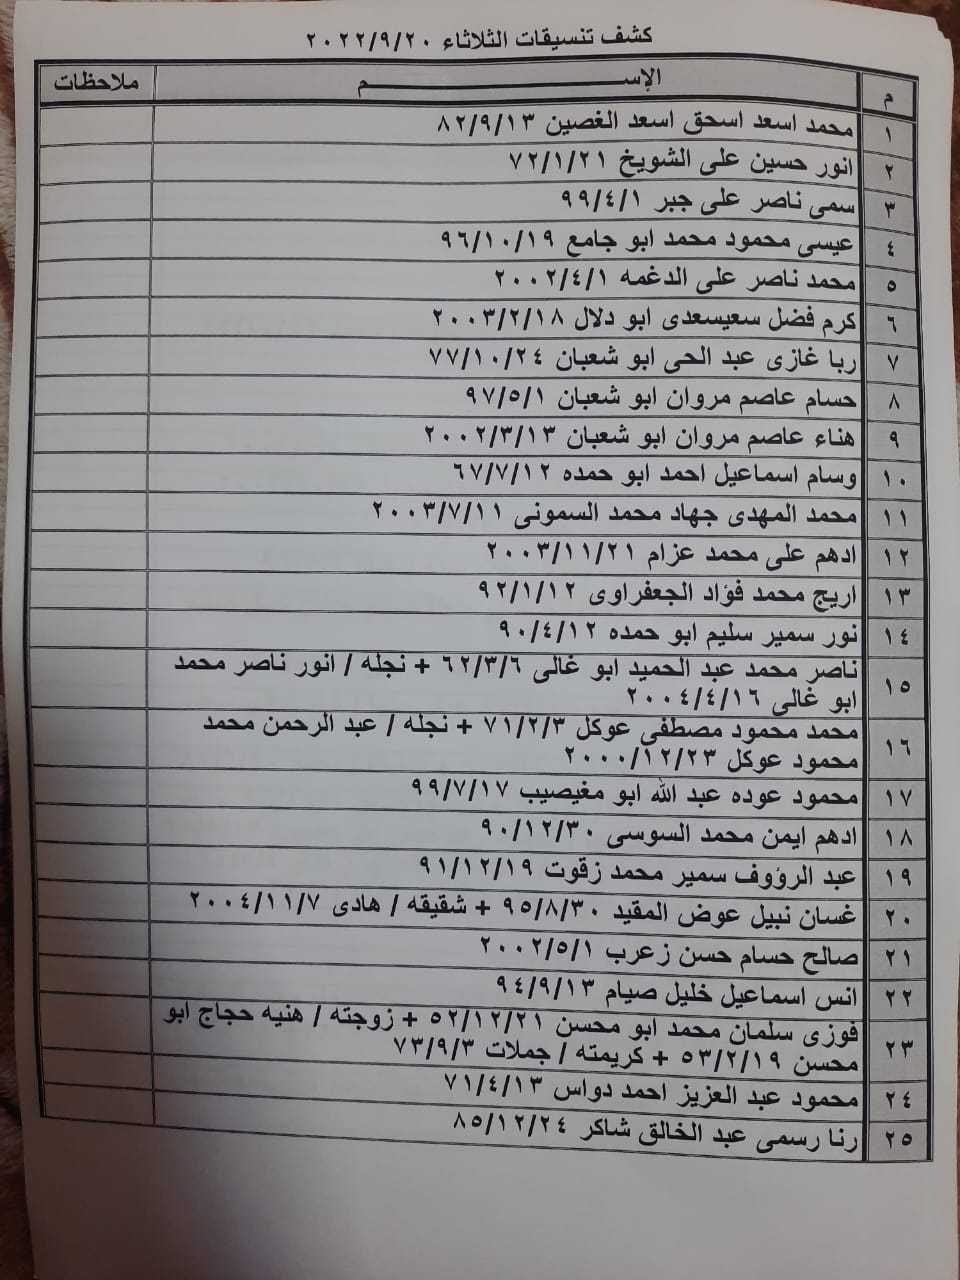 كشف تنسيقات الثلاثاء ٢٠٢٢/٩/٢٠
م الإســـــــــــــــــم ملاحظات
١ محمد اسعد اسحق اسعد الغصين ٨٢/٩/١٣
٢ انور حسين على الشويخ ٧٢/١/٢١
٣ سمى ناصر على جبر ٩٩/٤/١
٤ عيسى محمود محمد ابو جامع ٩٦/١٠/١٩
٥ محمد ناصر على الدغمه ٢٠٠٢/٤/١
٦ كرم فضل سعيسعدى ابو دلال ٢٠٠٣/٢/١٨
٧ ربا غازى عبد الحى ابو شعبان ٧٧/١٠/٢٤
٨ حسام عاصم مروان ابو شعبان ٩٧/٥/١
٩ هناء عاصم مروان ابو شعبان ٢٠٠٢/٣/١٣
١٠ وسام اسماعيل احمد ابو حمده ٦٧/٧/١٢
١١ محمد المهدى جهاد محمد السمونى ٢٠٠٣/٧/١١
١٢ ادهم على محمد عزام ٢٠٠٣/١١/٢١
١٣ اريج محمد فؤاد الجعفراوى ٩٢/١/١٢
١٤ نور سمير سليم ابو حمده ٩٠/٤/١٢
١٥ ناصر محمد عبد الحميد ابو غالى ٦٢/٣/٦ + نجله / انور ناصر محمد
ابو غالى ٢٠٠٤/٤/١٦
١٦ محمد محمود مصطفى عوكل ٧١/٢/٣ + نجله / عبد الرحمن محمد
محمود عوكل ٢٠٠٠/١٢/٢٣
١٧ محمود عوده عبد الله ابو مغيصيب ٩٩/٧/١٧
١٨ ادهم ايمن محمد السوسى ٩٠/١٢/٣٠
١٩ عبد الرؤوف سمير محمد زقوت ٩١/١٢/١٩
٢٠ غسان نبيل عوض المقيد ٩٥/٨/٣٠ + شقيقه / هادى ٢٠٠٤/١١/٧
٢١ صالح حسام حسن زعرب ٢٠٠٢/٥/١
٢٢ انس اسماعيل خليل صيام ٩٤/٩/١٣
٢٣ فوزى سلمان محمد ابو محسن ٥٢/١٢/٢١ + زوجته / هنيه حجاج ابو
محسن ٥٣/٢/١٩ + كريمته / جملات ٧٣/٩/٣
٢٤ محمود عبد العزيز احمد دواس ٧١/٤/١٣
٢٥ رنا رسمى عبد الخالق شاكر ٨٥/١٢/٢٤